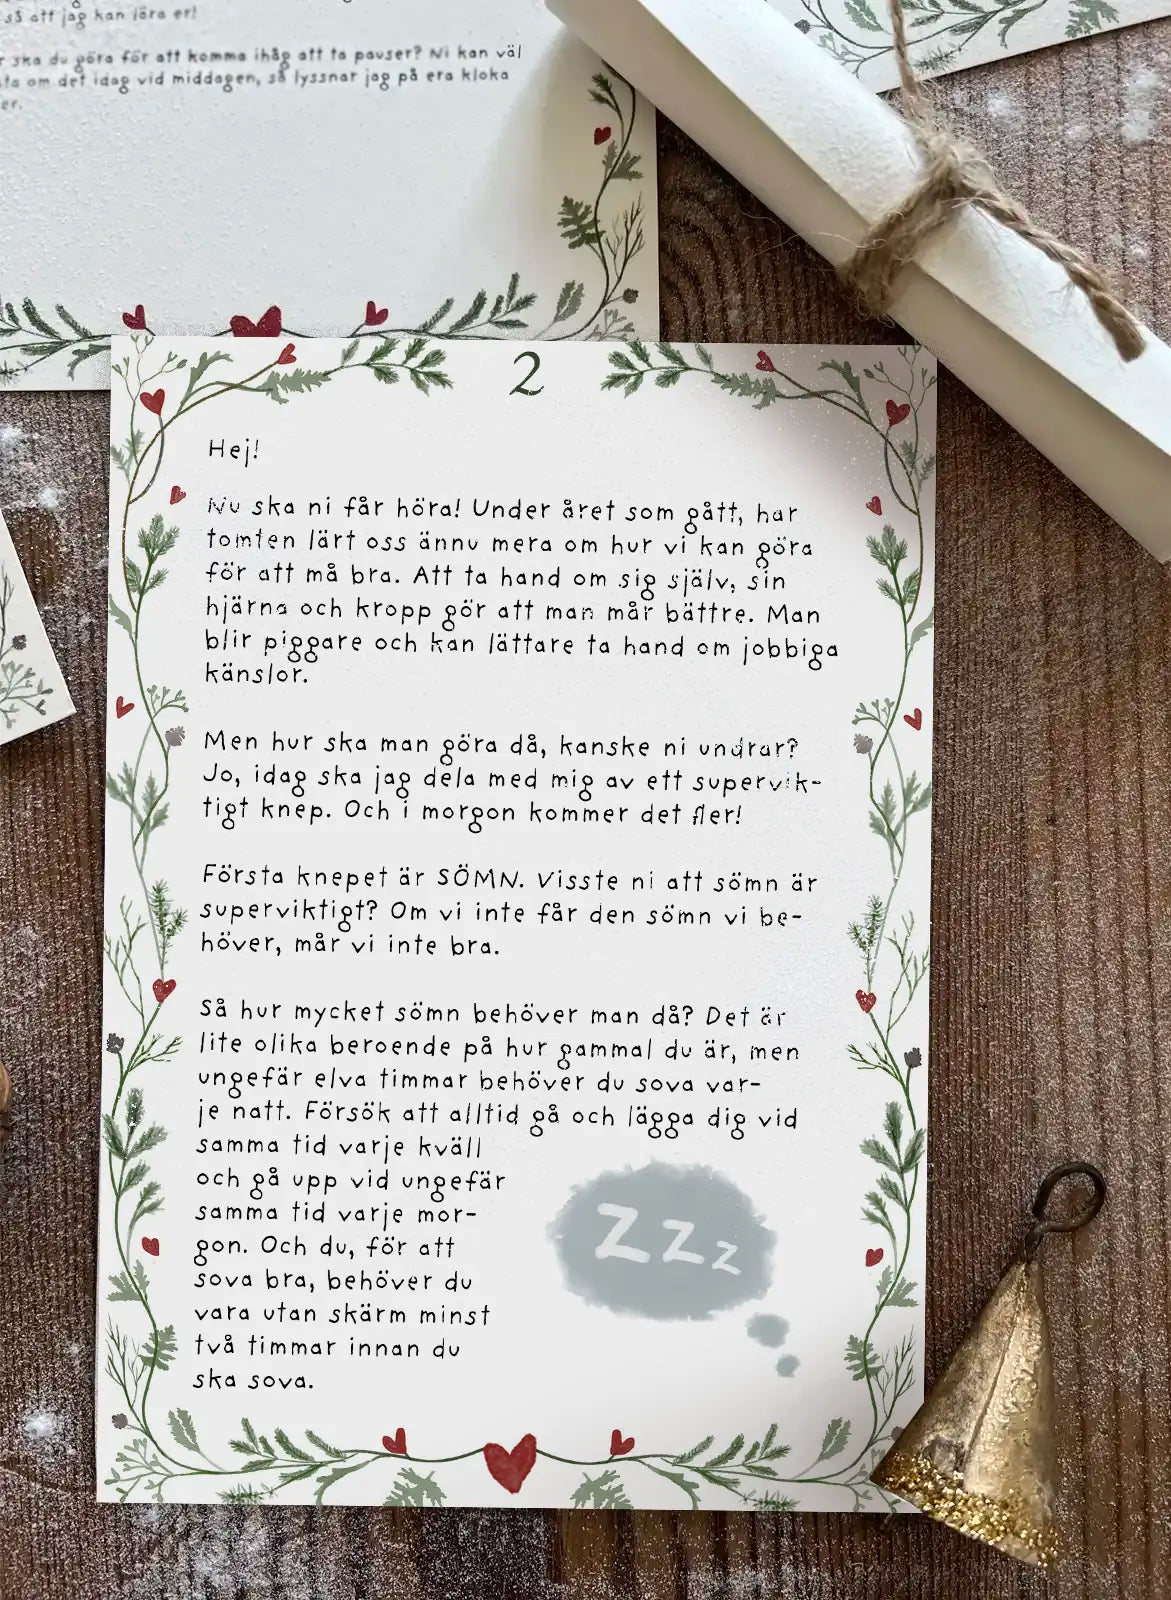 så att jag kan lära er!
ska du göra för att komma ihåg att ta pauser? Ni kan väl
om det idag vid middagen, så lyssnar jag på era kloka
er.
2
Hej!
Nu ska ni får höra! Under året som gått, har
tomten lärt oss ännu mera om hur vi kan göra
för att må bra. Att ta hand om sig själv, sin
hjärna och kropp gör att man mår bättre. Man
blir piggare och kan lättare ta hand om jobbiga
känslor.
Men hur ska man göra då, kanske ni undrar?
Jo, idag ska jag dela med mig av ett supervik-
tigt knep. Och i morgon kommer det fler!
Första knepet är SÖMN. Visste ni att sömn är
superviktigt? Om vi inte får den sömn vi be-
höver, mår vi inte bra.
Så hur mycket sömn behöver man då? Det är
lite olika beroende på hur gammal du är, men
ungefär elva timmar behöver du sova var-
je natt. Försök att alltid gå och lägga dig vid
samma tid varje kväll
och gå upp vid ungefär
samma tid varje mor-
gon. Och du, för att
sova bra, behöver du
vara utan skärm minst
två timmar innan du
ska sova.
Z Z Z